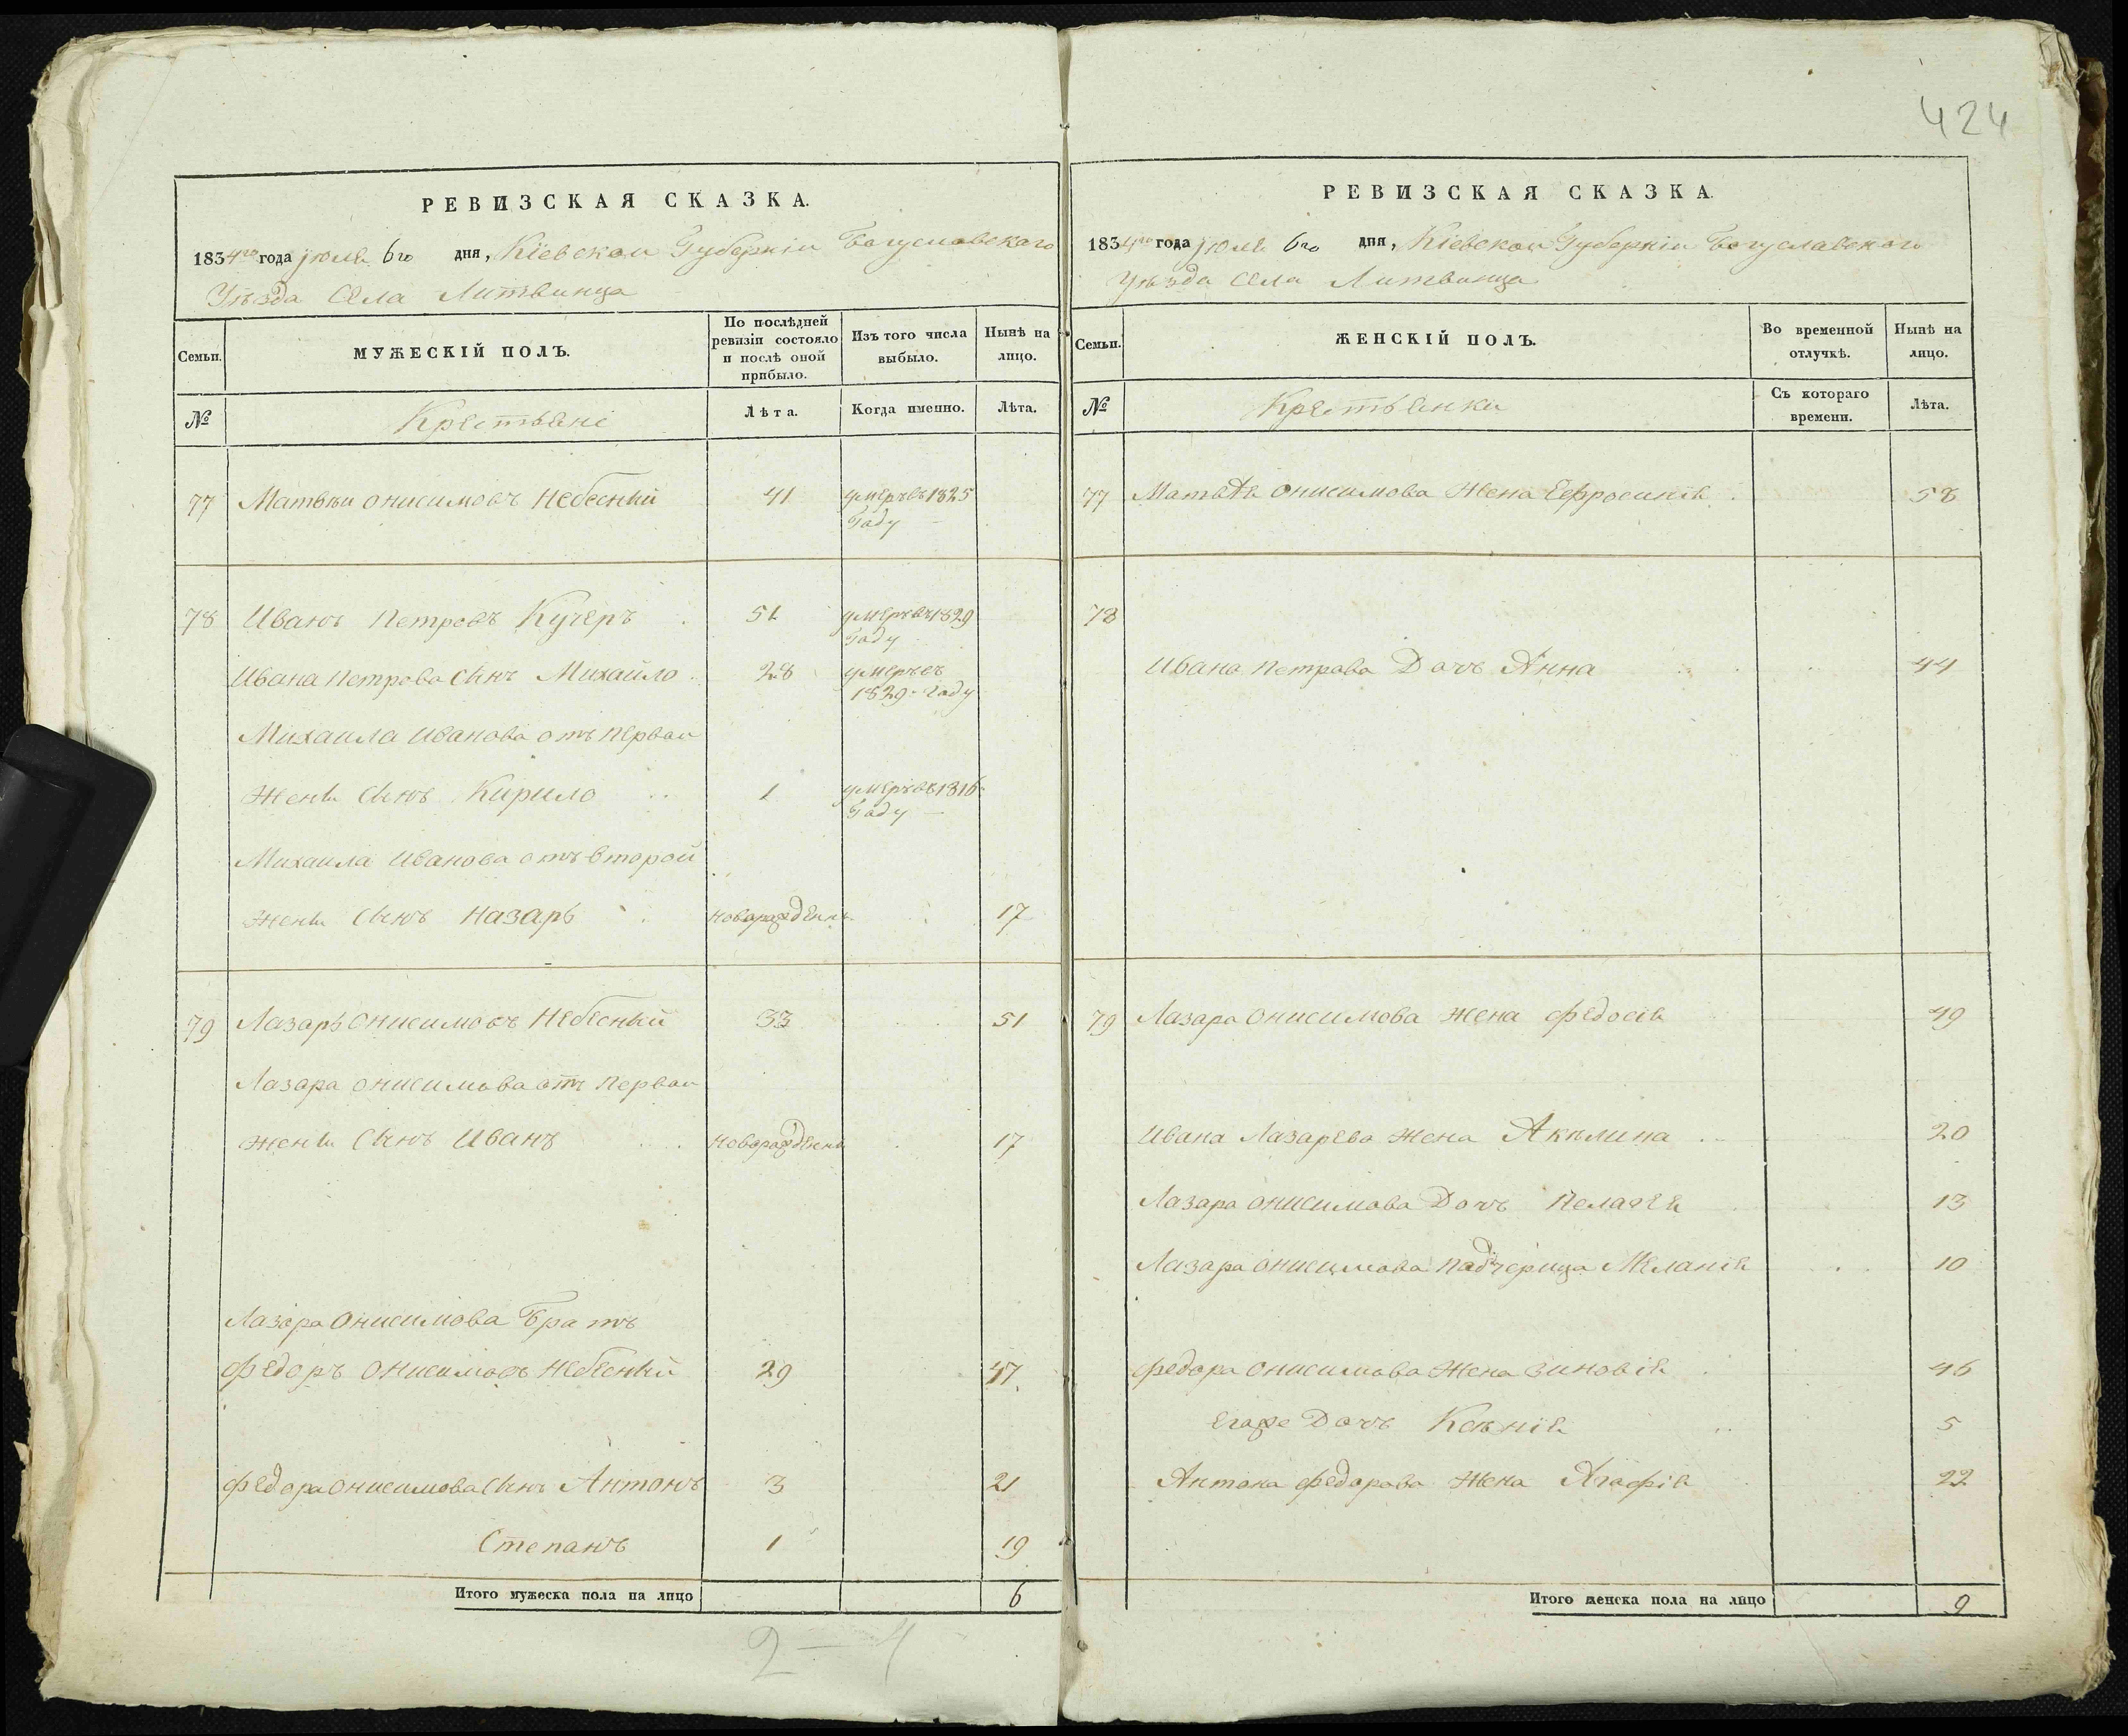 424
РЕВИЗСКАЯ СКАЗКА.
1834го года Іюля 6го дня, Кіевской Губерніи Богуславскаго
Уѣзда Села Литвинца
Семьи.
МУЖЕСКІЙ ПОЛЪ.
По послѣдней
ревизіи состояло
и послѣ оной
прибыло.
Изъ того числа
выбыло.
Нынѣ на
лицо.
№
Крестьяні
Лѣта.
Когда именно.
Лѣта.
77 Матвѣй Онисимовъ Небесный 41 умеръ въ 1825
Году
78 Иванъ Петровъ Кучеръ 51 умеръ въ 1829
Году
Ивана Петрова Сынъ Михайло 28 умеръ въ
1829 году
Михаила Иванова отъ первои
жены Сынъ Кирило 1 умеръ въ 1816
Году
Михаила Иванова отъ второй
жены Сынъ Назаръ новорожденъ 17
79 Лазаръ Онисимовъ Небесный 33 51
Лазара Онисимова отъ первои
жены Сынъ Иванъ новорожденъ 17
Лазара Онисимова Братъ
Федоръ Онисимовъ Небесный 29 47
Федора Онисимова Сынъ Антонъ 3 21
Степанъ 1 19
Итого мужеска пола на лицо 6
2 — 4
РЕВИЗСКАЯ СКАЗКА.
1834го года Іюля 6го дня, Кіевской Губерніи Богуславскаго
Уѣзда Села Литвинца
Семьи.
ЖЕНСКІЙ ПОЛЪ.
Во временной
отлучкѣ.
Нынѣ на
лицо.
№
Крестьянки
Съ котораго
времени.
Лѣта.
77 Матвѣя Онисимова Жена Ефросинія 58
78
Ивана Петрова Дочь Анна 44
79 Лазара Онисимова жена Федосія 49
Ивана Лазарева жена Акѣлина 20
Лазара Онисимова Дочь Пелагея 13
Лазара Онисимова Падчерица Меланія 10
Федора Онисимова Жена Зиновія 46
Егоже Дочь Ксѣнія 5
Антона Федорова Жена Агафія 22
Итого женска пола на лицо 9